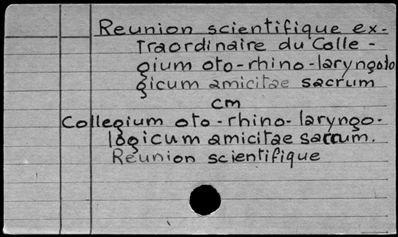 Reunion scientifique ex-
traordinaire du Colle-
gium oto-rhino-laryngolo
gicum amicitae sacrum
cm
Collegium oto-rhino-laryngo-
logicum amicitae sacrum.
Reunion scientifique